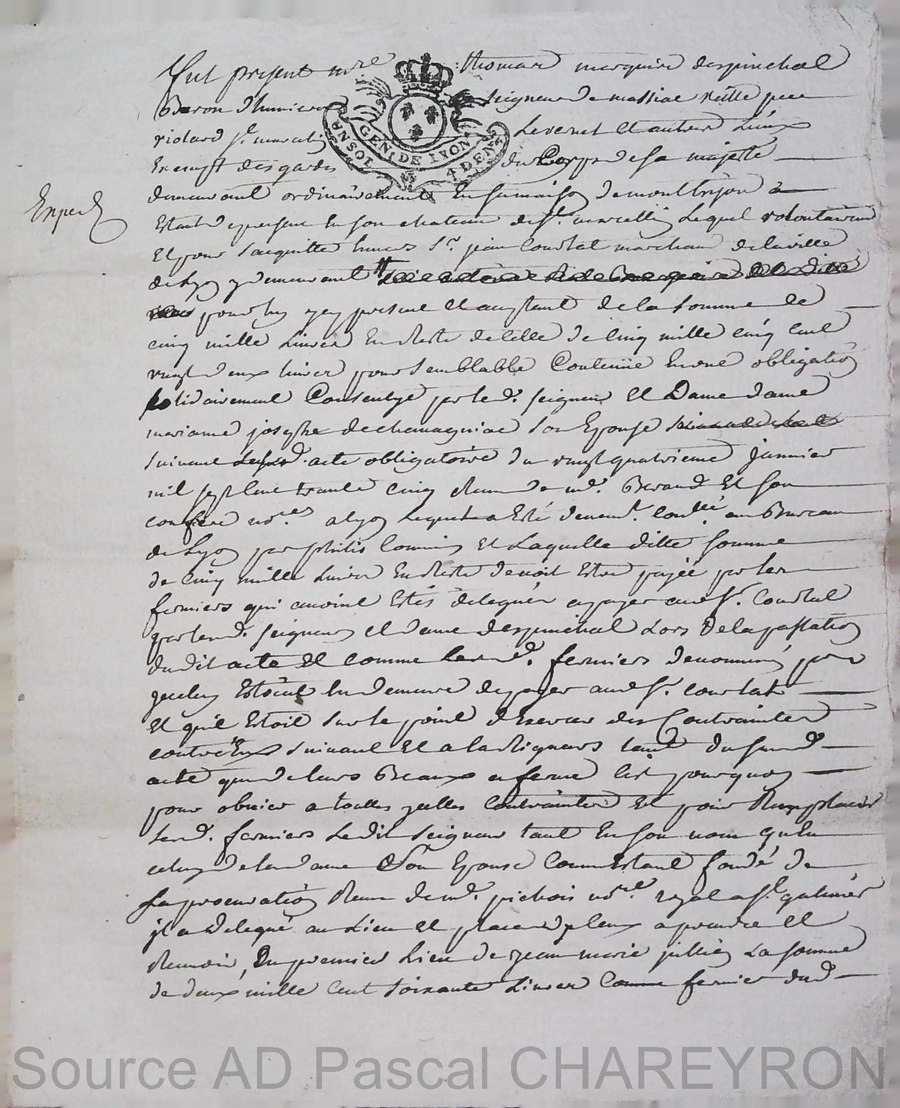 Fut present mre thomas marquis despinchal
Baron d seigneur de massiac
st. marcelin Le vernet et autres Lieux
Exempt des gardes du Corps de sa majesté
demeurant ordinairement En sa maison de montbrison
Estant a present En son chateau de st. marcellin Lequel volontairem
Expedé
Et pour s'acquitter Envers sr. jean Courtal marchand de la ville
de Lyon y demeurant
pour luy icy present et acceptant de la somme de
cinq mille Livres En Reste de Celle de Cinq mille cinq Cent
vingt deux livres pour semblable Contenüe En une obligation
solidairement Consentye par led. seigneur Et Dame dame
marianne josephe de chavagniac son Epouse
suivant acte obligatoire du vingt quatrieme janvier
mil sept Cent trante cinq Reçu de me. Beraud Et son
confrere nores a Lyon Lequel a Esté au Bureau
de Lyon par philis Commis Et Laquelle ditte somme
de Cinq mille Livres En Reste devoit Estre payée par les
fermiers qui avoint Estés delegués a payer aud. sr. Courtal
par lesd. seigneur et dame despinchal Lors de la passation
du dit acte Et comme lesd. fermiers denommés par
jceluy Estoient En demeure de payer aud sr. courtal
Et qu'il Etoit sur le point d'Exercer des Contraintes
contr'Eux suivant Et a la Rigueur tant du susd.
acte que de leurs Beaux a ferme C'est pourquoy
pour obvier a touttes jcelles contraintes Et pour Remplacer
Lesd. fermiers Le dit seigneur tant En son nom qu'En
celuy de la dame son Epouse Comme Estant fondé de
sa procuration Reçue de me. pichois nore royal a st. galmier
jl a delegué au Lieu Et place d'jceux a prendre et
Recevoir, En premier Lieu de jean marie jullien La somme
de deux mille cent soixante Livres Comme fermier dud.
GEN. DE LYON
4 DEN.
Source AD Pascal CHAREYRON